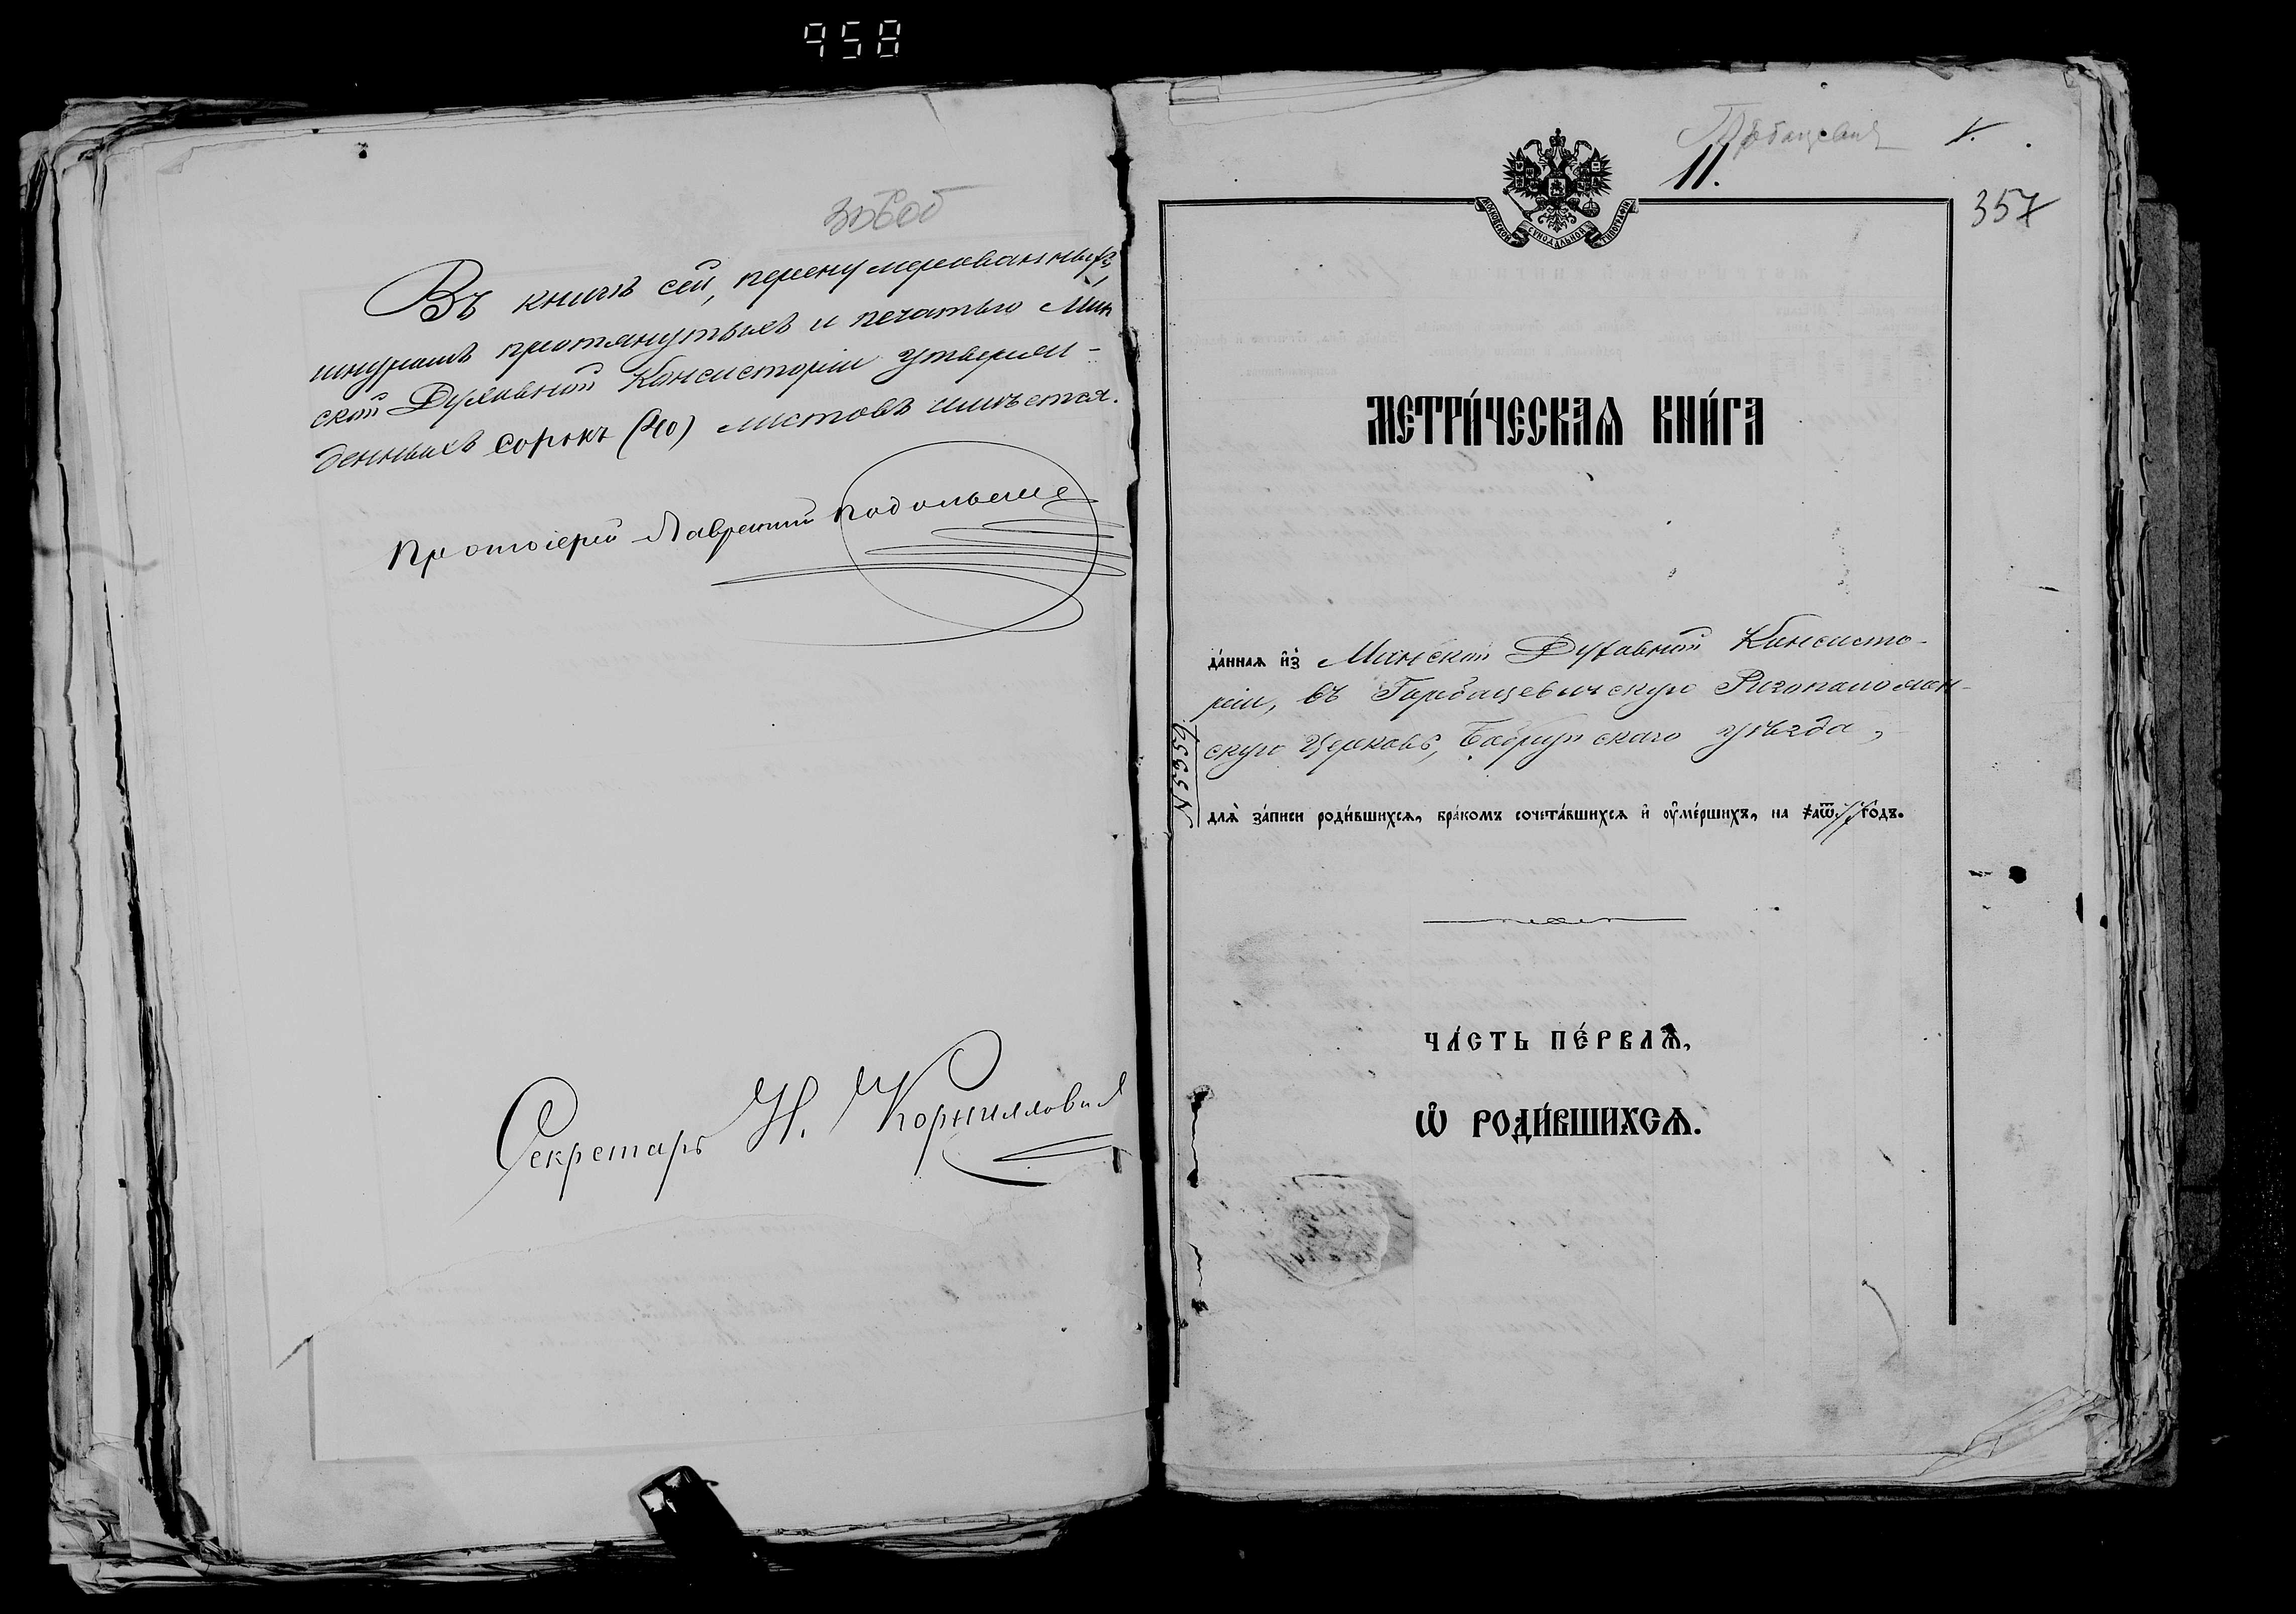 958
356об
Въ книгѣ сей, перенумерованныхъ,
шнуромъ протянутыхъ и печатью Мин
ской Духовной Консисторіи утверж-
денныхъ сорокъ (40) листовъ имѣется.
Протоіерей Лаврентій
Секретарь Н. Корниллович
Горбацевичи
11.
357
МОСКОВСКОЙ СѴНОДАЛЬНОЙ ТИПОГРАФІИ
МЕТРИ́ЧЕСКАѦ КНИ́ГА
да́ннаѧ и҆з̾ Минской Духовной Консисто-
ріи, въ Горбацевичскую Ризоположен-
скую Церковь, Бобруйскаго уѣзда,
№ 5357
для̀ за́писи роди́вшихсѧ, бра́комъ сочета́вшихсѧ и҆ ᲂу҆ме́ршихъ, на ҂аѿ. годъ.
ЧА́СТЬ ПЕ́РВАѦ,
Ѽ РОДИ́ВШИХСѦ.